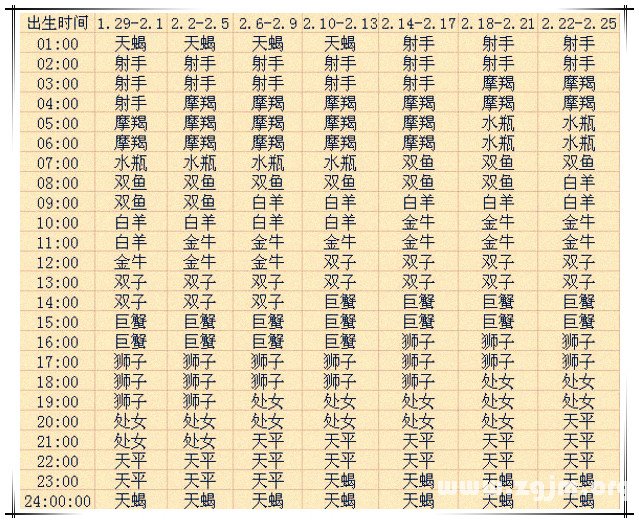 出生时间 1.29-2.1 2.2-2.5 2.6-2.9 2.10-2.13 2.14-2.17 2.18-2.21 2.22-2.25
01:00 天蝎 天蝎 天蝎 天蝎 射手 射手 射手
02:00 射手 射手 射手 射手 射手 射手 射手
03:00 射手 射手 射手 射手 射手 摩羯 摩羯
04:00 射手 摩羯 摩羯 摩羯 摩羯 摩羯 摩羯
05:00 摩羯 摩羯 摩羯 摩羯 摩羯 水瓶 水瓶
06:00 摩羯 摩羯 摩羯 摩羯 摩羯 水瓶 水瓶
07:00 水瓶 水瓶 水瓶 水瓶 双鱼 双鱼 双鱼
08:00 双鱼 双鱼 双鱼 双鱼 双鱼 双鱼 白羊
09:00 双鱼 双鱼 白羊 白羊 白羊 白羊 白羊
10:00 白羊 白羊 白羊 白羊 金牛 金牛 金牛
11:00 白羊 金牛 金牛 金牛 金牛 金牛 金牛
12:00 金牛 金牛 金牛 双子 双子 双子 双子
13:00 双子 双子 双子 双子 双子 双子 双子
14:00 双子 双子 双子 巨蟹 巨蟹 巨蟹 巨蟹
15:00 巨蟹 巨蟹 巨蟹 巨蟹 巨蟹 巨蟹 巨蟹
16:00 巨蟹 巨蟹 巨蟹 巨蟹 狮子 狮子 狮子
17:00 狮子 狮子 狮子 狮子 狮子 狮子 狮子
18:00 狮子 狮子 狮子 狮子 狮子 处女 处女
19:00 狮子 狮子 处女 处女 处女 处女 处女
20:00 处女 处女 处女 处女 处女 处女 天平
21:00 处女 处女 天平 天平 天平 天平 天平
22:00 天平 天平 天平 天平 天平 天平 天平
23:00 天平 天平 天平 天蝎 天蝎 天蝎 天蝎
24:00:00 天蝎 天蝎 天蝎 天蝎 天蝎 天蝎 天蝎